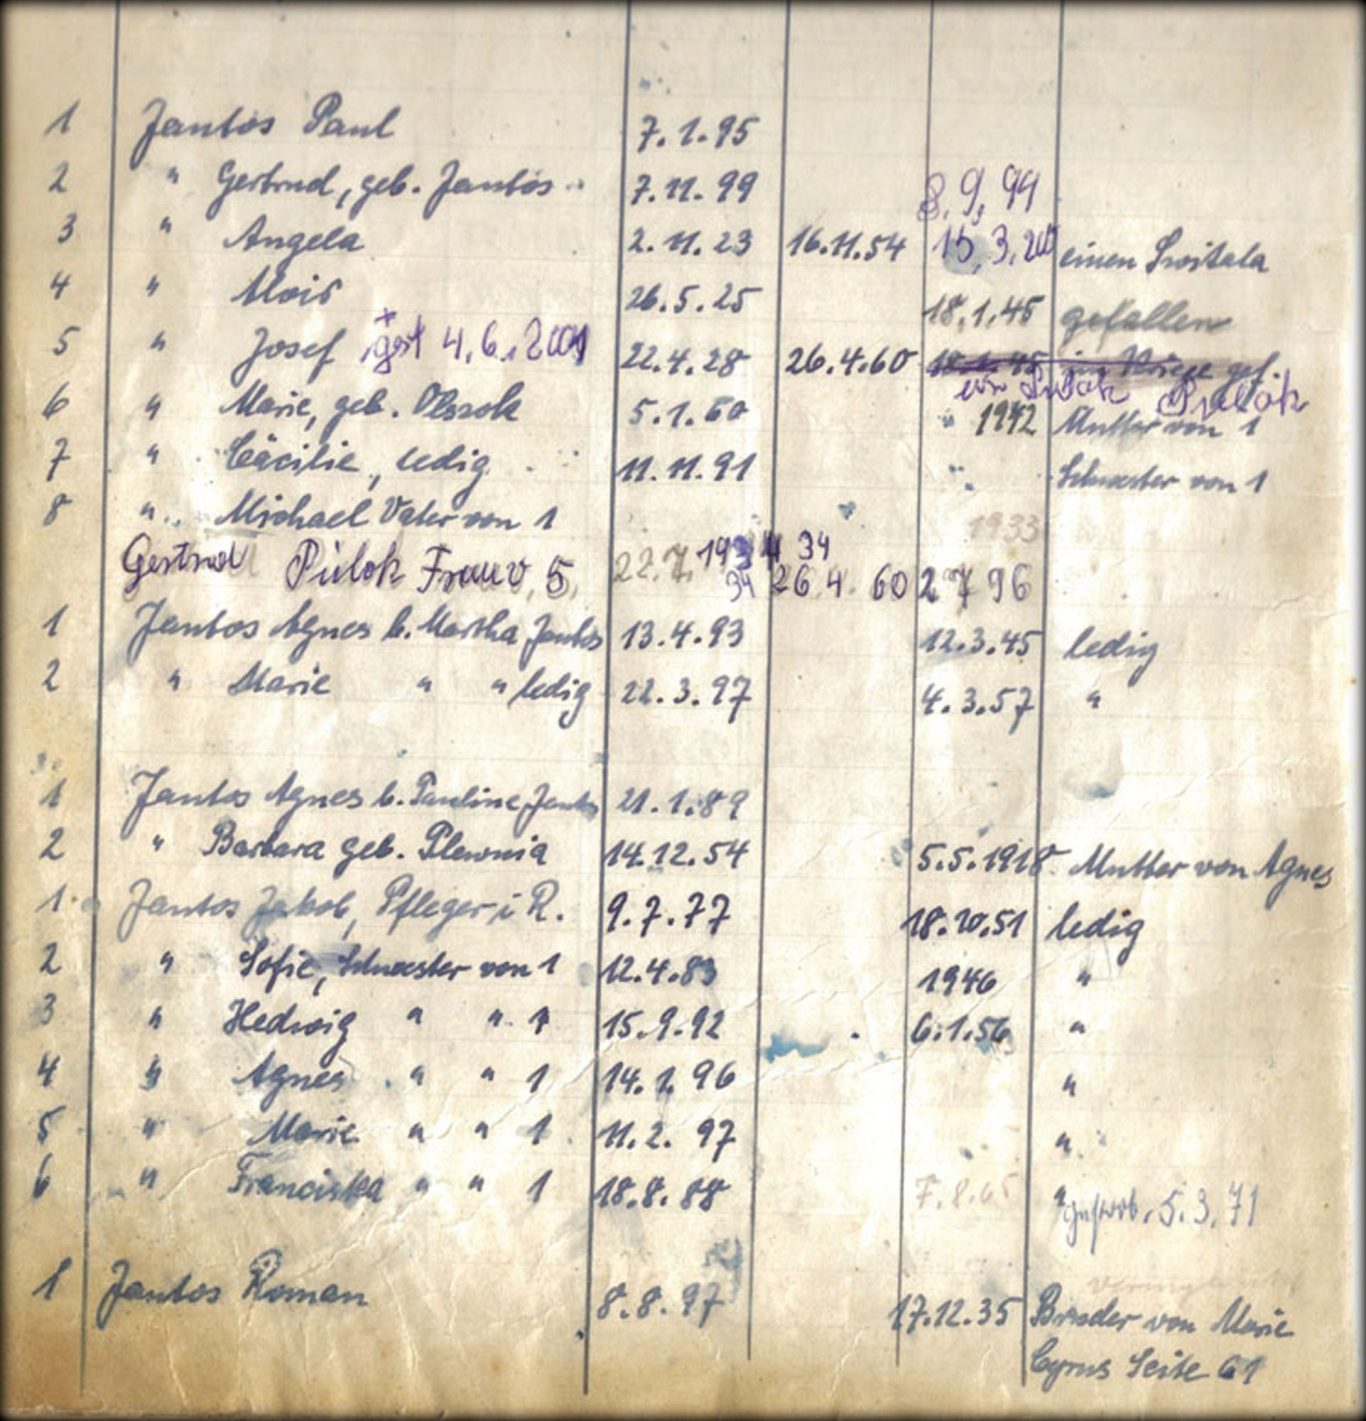 1 Jantos Paul 7.1.95
2 " Gertrud, geb. Jantos 7.11.99 8.9.99
3 " Angela 2.11.23 16.11.54 15.3.20 einen Switala
4 " Alois 26.5.25 18.1.45 gefallen
5 " Josef + gest 4.6.2001 22.4.28 26.4.60 18.1.45 im Kriege gef.
Pulok
6 " Marie, geb. Olssok 5.1.60 " 1942 Mutter von 1
7 " Cäcilie, ledig 11.11.91 " Schwester von 1
8 " Michael Vater von 1 1933
Gertrud Pulok Frau v. 5 22.7. 1934 34
34 26 4. 60 2 7 96
1 Jantos Agnes b. Martha Jantos 13.4.93 12.3.45 ledig
2 " Marie " " ledig 22.3.97 4.3.57 "
1 Jantos Agnes b. Pauline Jantos 21.1.89
2 " Barbara geb. Plewnia 14.12.54 5.5.1918 Mutter von Agnes
1 Jantos Jakob, Pfleger i R. 9.7.77 18.10.51 ledig
2 " Sofie, Schwester von 1 12.4.83 1946 "
3 " Hedwig " " 1 15.9.92 6.1.56 "
4 " Agnes " " 1 14.1.96 "
5 " Marie " " 1 11.2.97 "
6 " Franciska " " 1 18.8.88 7.8.65 " gestorb. 5.3.71
1 Jantos Roman 8.8.97 17.12.35 Bruder von Marie
Cyrus Seite 61